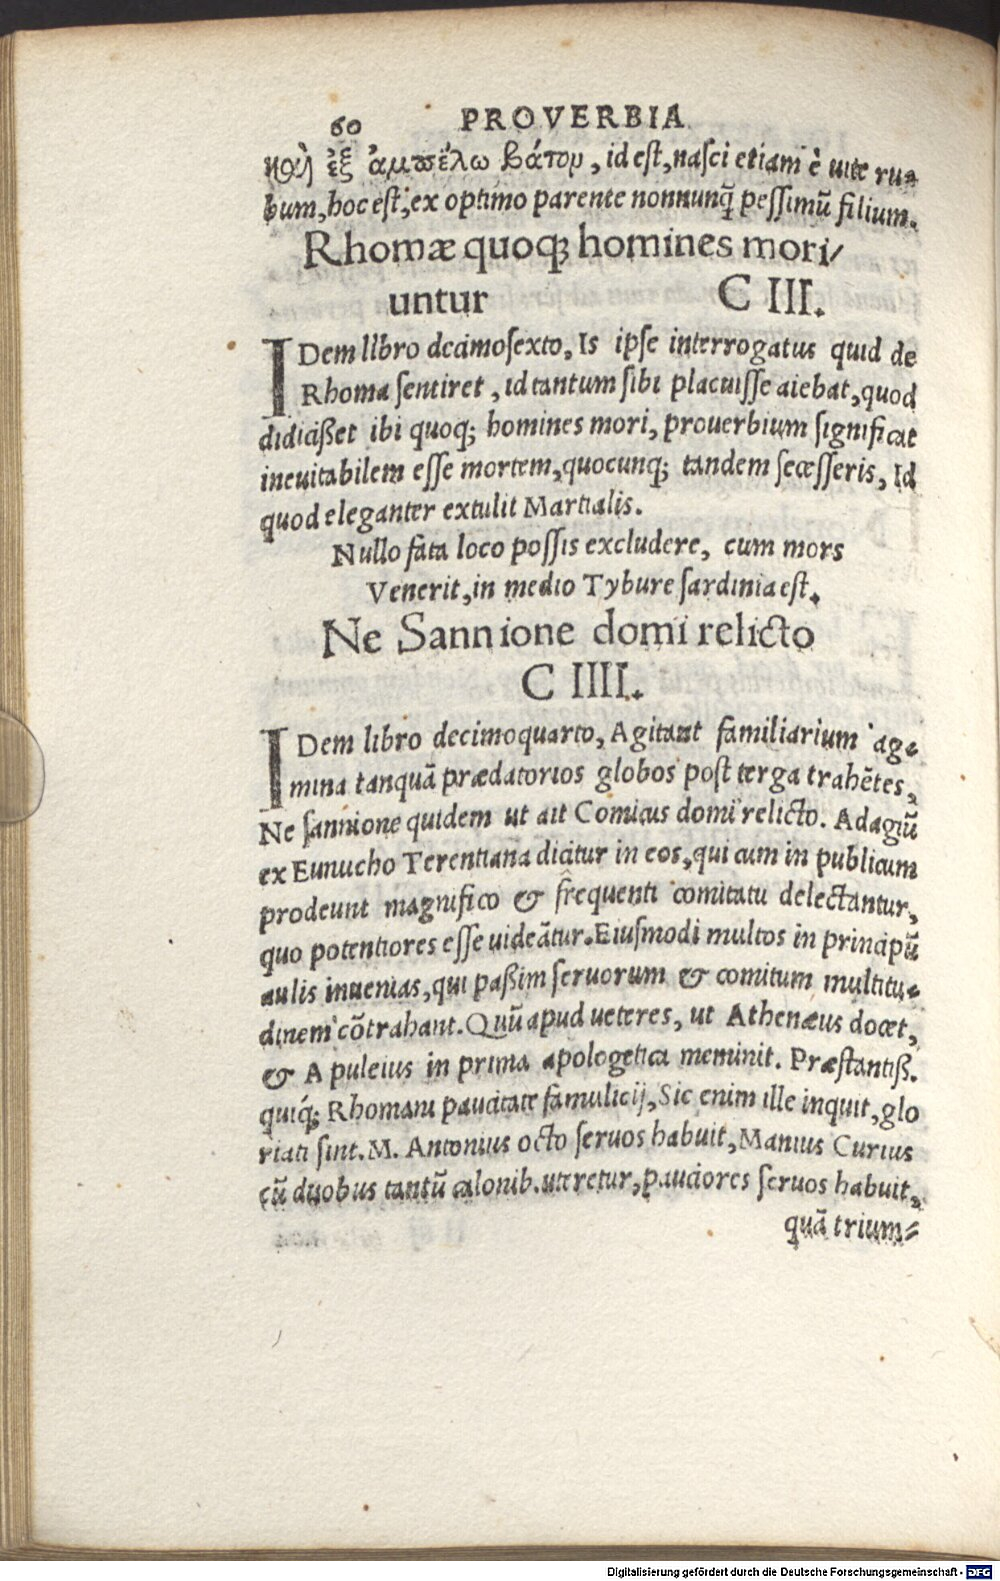 60 PROVERBIA
καὶ ἐξ ἀμπέλω βάτου, id est, nasci etiam è uite ru-
bum, hoc est, ex optimo parente nonnunq̃ pessimū filium.
Rhomæ quoq; homines mori/
untur C III.
IDem libro decimosexto, Is ipse interrogatus quid de
Rhoma sentiret, id tantum sibi placuisse aiebat, quod
didicißet ibi quoq; homines mori, prouerbium significat
ineuitabilem esse mortem, quocunq; tandem secesseris, Id
quod eleganter extulit Martialis.
Nullo fata loco possis excludere, cum mors
Venerit, in medio Tybure sardinia est.
Ne Sannione domi relicto
C IIII.
IDem libro decimoquarto, Agitant familiarium ag-
mina tanquā prædatorios globos post terga trahētes,
Ne sannione quidem ut ait Comicus domi relicto. Adagiū
ex Eunucho Terentiana dicitur in eos, qui cum in publicum
prodeunt magnifico & frequenti comitatu delectantur,
quo potentiores esse uideātur. Eiusmodi multos in principū
aulis inuenias, qui paßim seruorum & comitum multitu-
dinem cōtrahant. Quū apud ueteres, ut Athenæus docet,
& Apuleius in prima apologetica meminit. Præstantiß.
quiq́; Rhomani paucitate famulicij, Sic enim ille inquit, glo
riati sint. M. Antonius octo seruos habuit, Manius Curius
cū duobus tantū calonib. uteretur, pauciores seruos habuit,
quā trium-
Digitalisierung gefördert durch die Deutsche Forschungsgemeinschaft - DFG